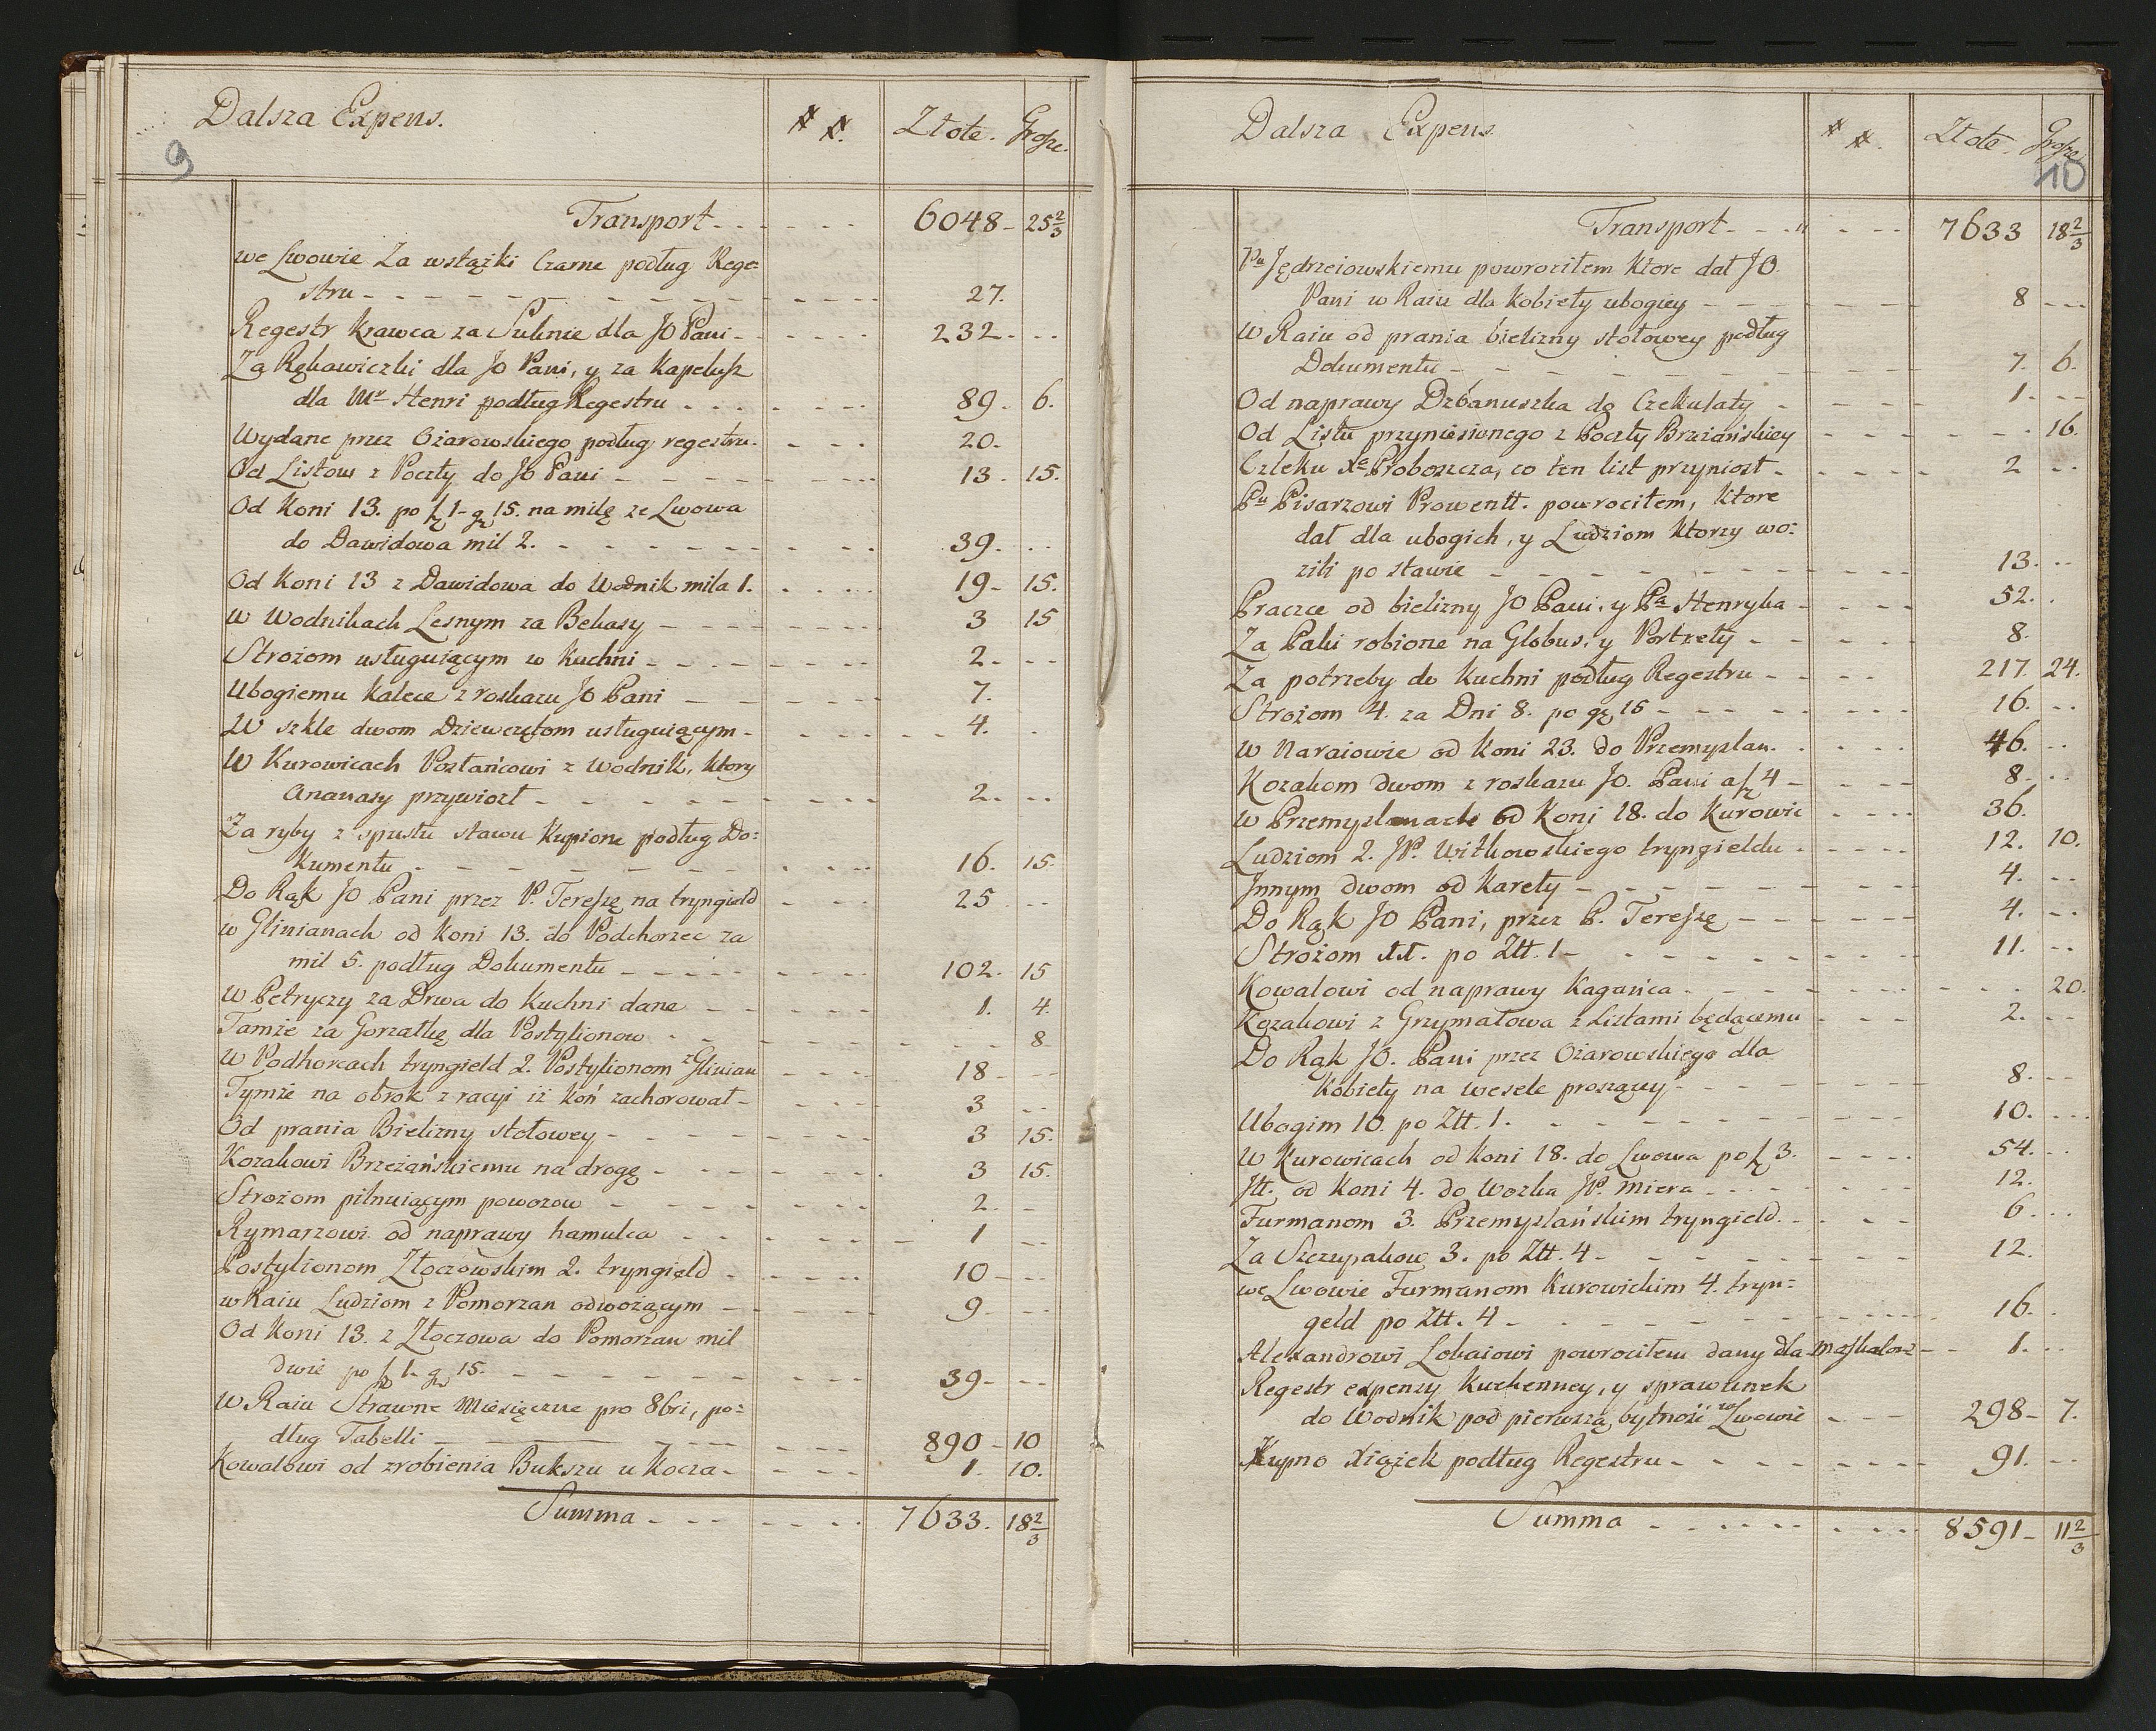 Dalsza Expens. # #. Złote. Grosze.
9
Transport - - - - - - 6048 - 25 2/3
we Lwowie Za wstążki Czarne podług Rege=
stru - - - - - - - - - 27.
Regestr Krawca za Suknie dla JO Pani - - - - - 232 - - -
Za Rękawiczki dla JO Pani, y za Kapelusz
dla Mr Henri podług Regestru . . . - - - - 89 - 6.
Wydane przez Ożarowskiego podług regestru. - - - 20.
Od Listow z Poczty do JO Pani - - - - - - - 13. 15.
Od Koni 13. po f 1 - gr 15. na milę ze Lwowa
do Dawidowa mil 2. - - - - - - - - - 39. . .
Od Koni 13 z Dawidowa do Wodnik mila 1. . . . . 19 - 15.
W Wodnikach Lesnym za Bekasy - - - - - - - 3 15
Strożom usługuiącym w Kuchni - - - - - - - 2 - - -
Ubogiemu kalece z roskazu JO Pani - - - - - - 7.
W szkle dwom Dziewczętom usługuiącym - - - - - - 4. .
W Kurowicach Posłańcowi z Wodnik, ktory
Ananasy przywiozł - - - - - - - - - 2. . .
Za ryby z spustu stawu Kupione podług Do=
kumentu - - - - - - - - - 16. 15.
Do Rąk JO Pani przez P. Tereszę na tryngield - - - 25 - -
w Glinianach od Koni 13. do Podchorzec za
mil 5. podług Dokumentu - - - - - - - - 102. 15
W Petryczy za Drwa do Kuchni dane - - - - - - 1. 4.
Tamże za Gorzałkę dla Postylionow - - - - - - - 8
W Podhorcach tryngield 2. Postylionom z Glinian - - - - 18 - - -
Tymże na obrok z racyi iż koń zachorował - - - - - 3 - -
Od prania Bielizny stołowey - - - - - - - - 3 15.
Kozakowi Brzeżańskiemu na drogę - - - - - - - 3 15.
Strożom pilnuiącym powozow - - - - - - - 2. -
Rymarzowi od naprawy hamulca - - - - - - - 1 - -
Postylionom Złoczowskim 2. tryngield - - - - - - 10 - - -
w Raiu Ludziom z Pomorzan odwożącym - - - - - - 9 - - -
Od Koni 13. z Złoczowa do Pomorzan mil
dwie po f 1 - gr 15. - - - - - - - - - 39 - - -
W Raiu Strawne Miesięczne pro 8bri, po=
dług Tabelli - - - - - - - - 890 - 10
Kowalowi od zrobienia Bukszu u Kocza - - - - - 1. 10.
Summa - - - - - - - 7633. 18 2/3
Dalsza Expens. # #. Złote. Grosze
10
Transport - - - " - - - 7633 18 2/3
Pu Jędrzeiowskiemu powrociłem ktore dał JO.
Pani w Raiu dla Kobiety ubogiey - - - - - - - 8 - - -
W Raiu od prania bielizny stołowey podług
Dokumentu - - - - - - - - - 7. 6.
Od naprawy Dzbanuszka do Czekulaty - - - - - 1. - -
Od Listu przyniesionego z Poczty Brzeżańskiey - - - - - - - 16.
Człeku Xa Proboszcza, co ten list przyniosł - - - - - - 2 - -
Pu Pisarzowi Prowentt. powrociłem, ktore
dał dla ubogich, y Ludziom ktorzy wo=
zili po stawie - - - - - - - - - 13. - -
Praczce od bielizny JO Pani, y Pa Henryka - - - - 52. .
Za Paki robione na Globus, y Portrety - - - - - - 8.
Za potrzeby do Kuchni podług Regestru - - - - - 217. 24.
Strożom 4. za Dni 8. po gr 15 - - - - - - - - 16. - -
w Naraiowie od Koni 23. do Przemyslan. . - - - - 46. - -
Kozakom dwom z roskazu JO. Pani a f 4 - - - - - 8 - - -
w Przemyslanach od Koni 18. do Kurowic - - - - - 36.
Ludziom 2. JP. Witkowskiego tryngieldu - - - - - 12. 10.
Jnnym dwom od Karety - - - - - - - - - 4. - -
Do Rąk JO Pani, przez P. Tereszę - - - - - - - 4. - -
Strożom 11. po Złł. 1 - - - - - - - - - 11. - -
Kowalowi od naprawy Kagańca - - - - - - - - - 20.
Kozakowi z Grzymałowa z Listami będącemu - - - - 2. - -
Do Rąk JO. Pani przez Ożarowskiego dla
Kobiety na wesele proszącey - - - - - - - - 8. - -
Ubogim 10. po Złł. 1. - - - - - - - - - 10. - - -
W Kurowicach od Koni 18. do Lwowa po f 3. - - - - 54. - -
Jtt. od Koni 4. do Wozka JP. Miera - - - - - - 12.
Furmanom 3. Przemyslańskim tryngield. - - - - - 6. - -
Za Szczupakow 3. po Złł. 4 - - - - - - - - 12.
we Lwowie Furmanom Kurowickim 4. tryn=
geld po Złł. 4 - - - - - - - - - - 16. .
Alexandrowi Lokaiowi powrociłem dany dla Moskalow - - 1. - -
Regestr expensy Kuchenney, y sprawunek
do Wodnik pod pierwszą bytność we Lwowie - - - - 298 - 7.
Kupno xiążek podług Regestru - - - - - - - - 91. - -
Summa - - - - - - - - 8591 - 11 2/3